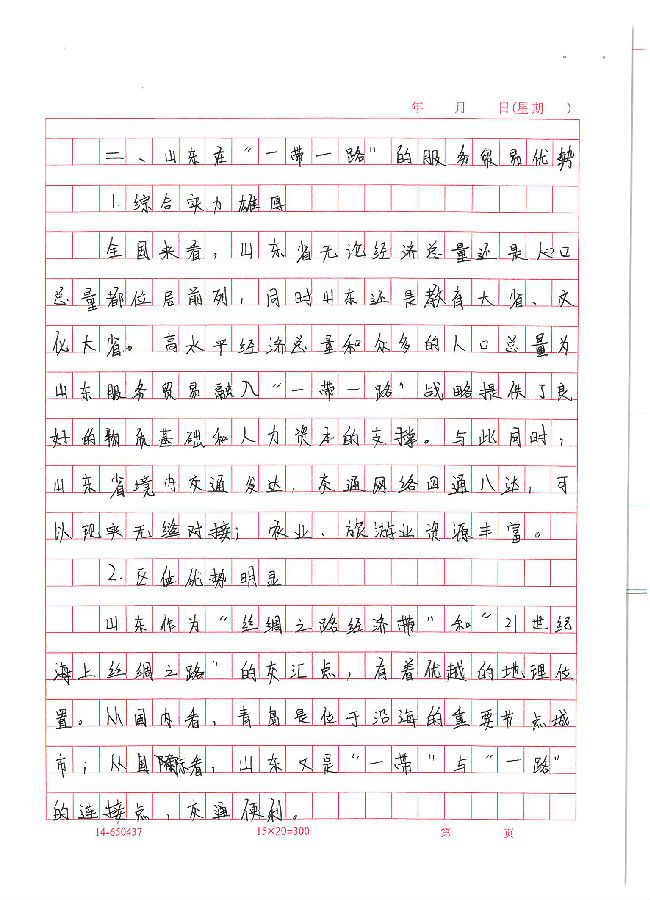 年 月 日(星期 )
二、山东在“一带一路”的服务贸易优势
1.综合实力雄厚
全国来看，山东省无论经济总量还是人口
总量都位居前列，同时山东还是教育大省、文
化大省。高水平经济总量和众多的人口总量为
山东服务贸易融入“一带一路”战略提供了良
好的物质基础和人力资本的支撑。与此同时，
山东省境内交通发达，交通网络四通八达，可
以现实无缝对接；农业、旅游业资源丰富。
2.区位优势明显
山东作为“丝绸之路经济带”和“21世纪
海上丝绸之路”的交汇点，有着优越的地理位
置。从国内看，青岛是位于沿海的重要节点城
市；从国际看，山东又是“一带”与“一路”
的连接点，交通便利。
14-650437 15×20=300 第 页